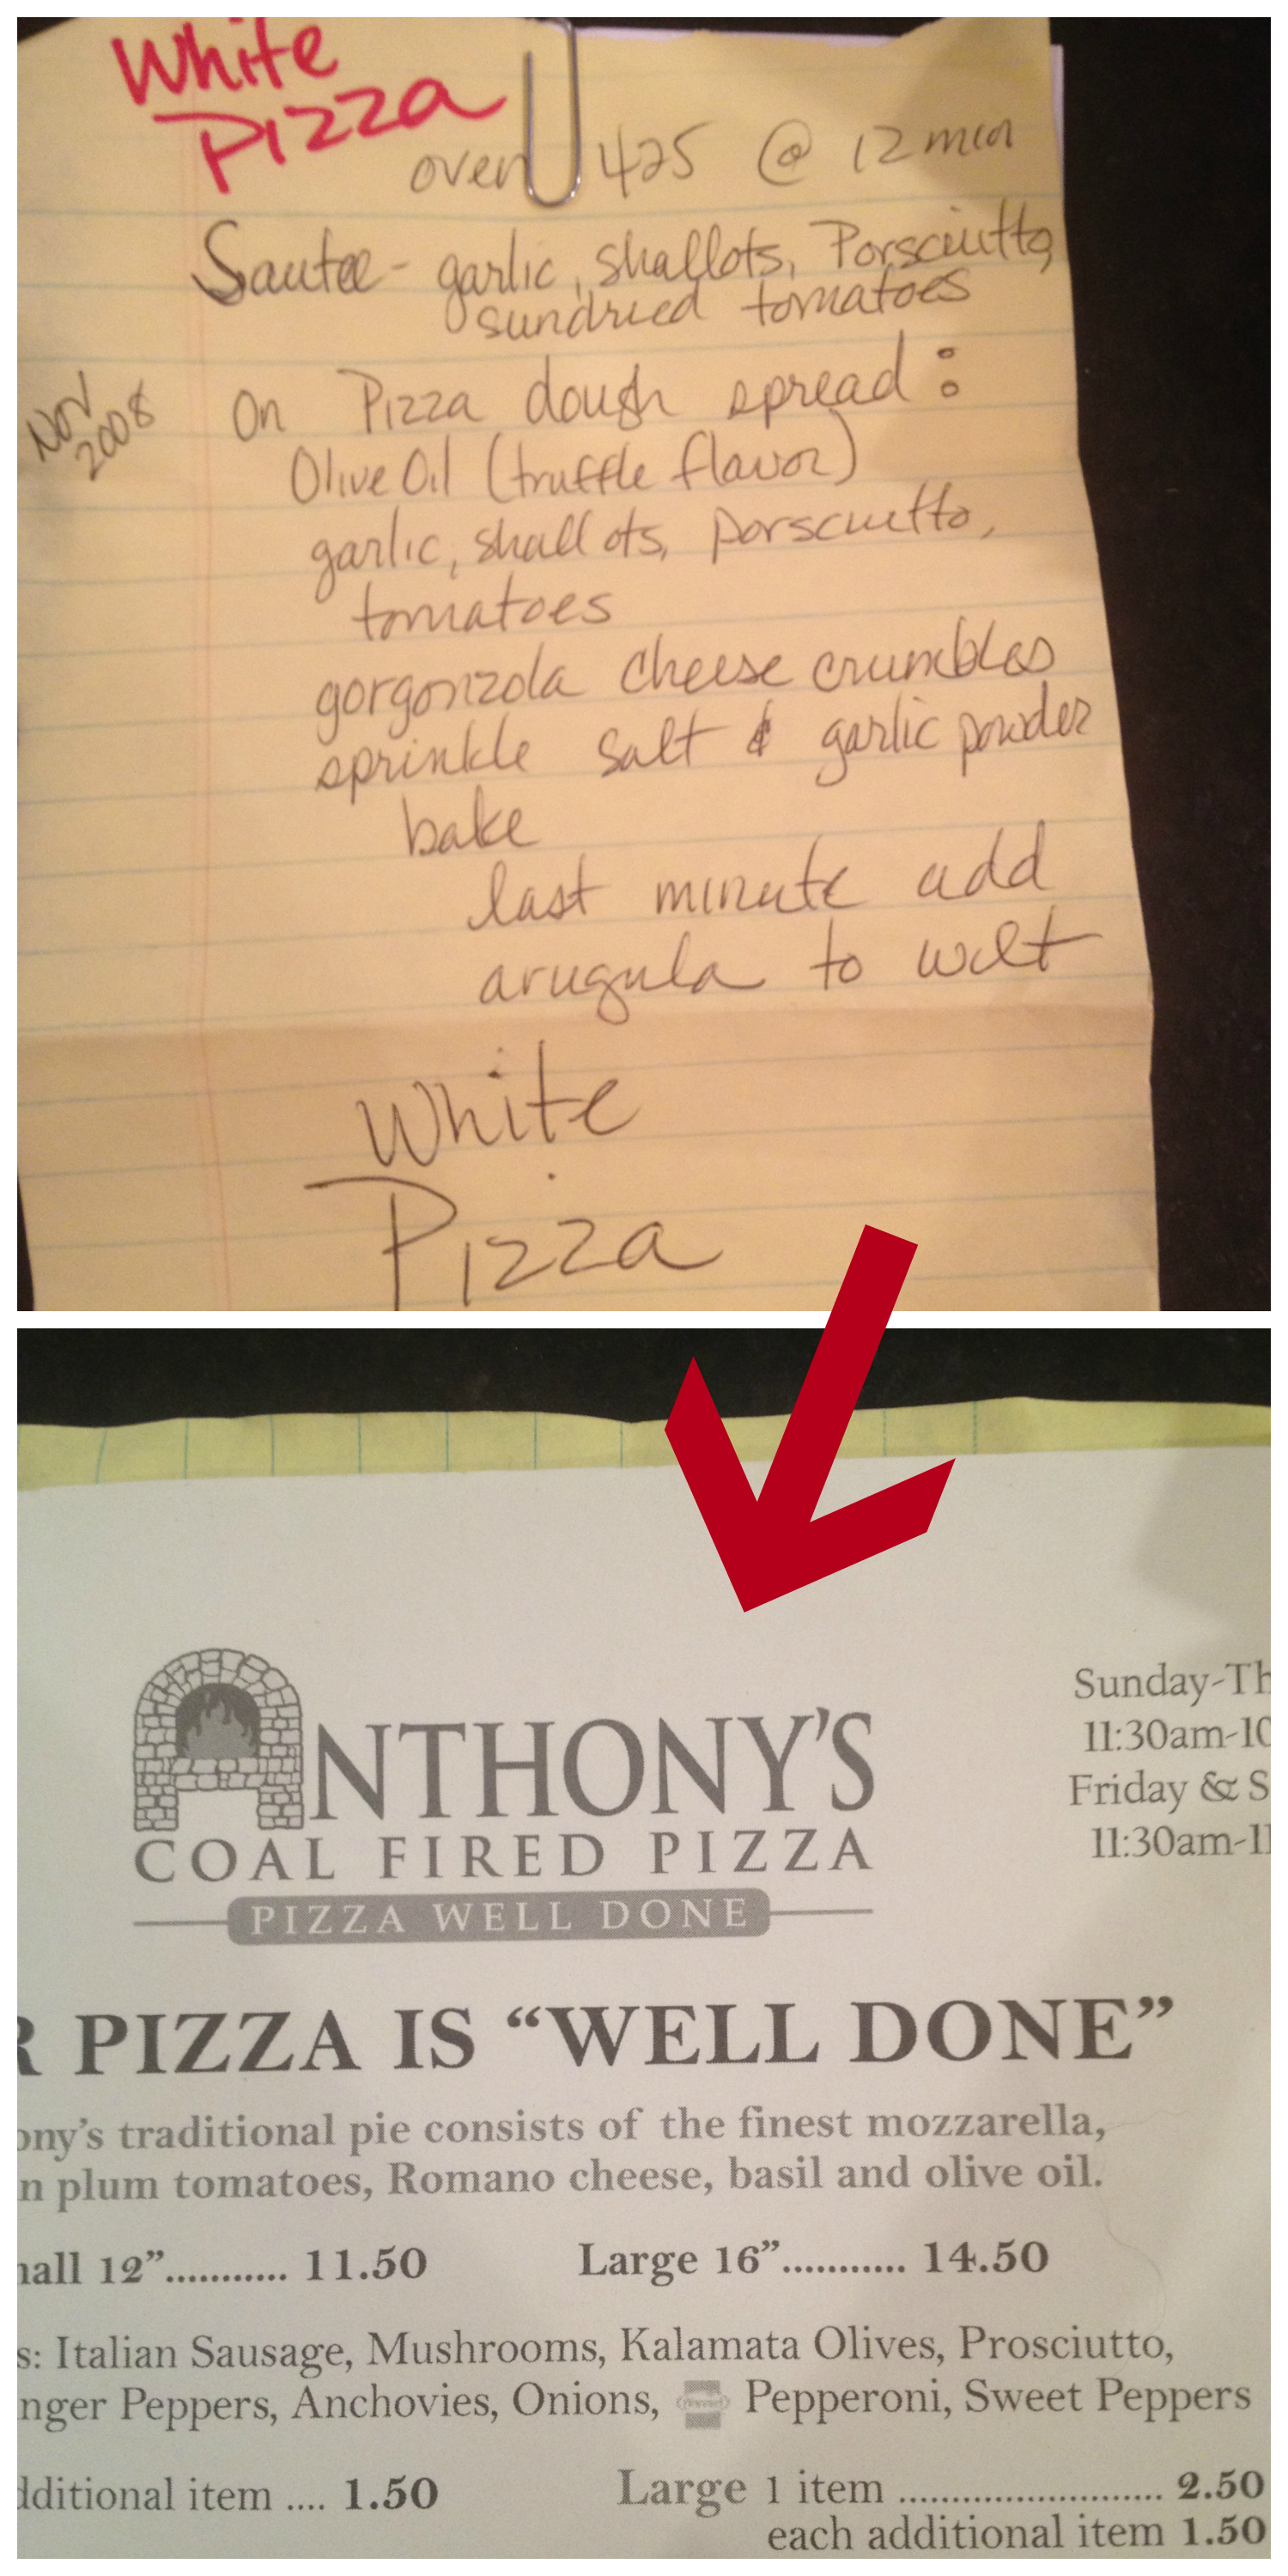 White
Pizza
oven 425 @ 12 min
Sautee - garlic, shallots, Porsciutto,
sundried tomatoes
Nov
2008
On Pizza dough spread:
Olive Oil (truffle flavor)
garlic, shallots, porscuitto,
tomatoes
gorgonzola cheese crumbles
sprinkle salt & garlic powder
bake
last minute add
arugula to wilt
White
Pizza
ANTHONY'S
COAL FIRED PIZZA
PIZZA WELL DONE
Sunday-Th
11:30am-10
Friday & S
11:30am-11
R PIZZA IS “WELL DONE”
ony's traditional pie consists of the finest mozzarella,
n plum tomatoes, Romano cheese, basil and olive oil.
nall 12”........... 11.50 Large 16”........... 14.50
s: Italian Sausage, Mushrooms, Kalamata Olives, Prosciutto,
nger Peppers, Anchovies, Onions, Pepperoni, Sweet Peppers
dditional item .... 1.50 Large 1 item ........................ 2.50
each additional item 1.50